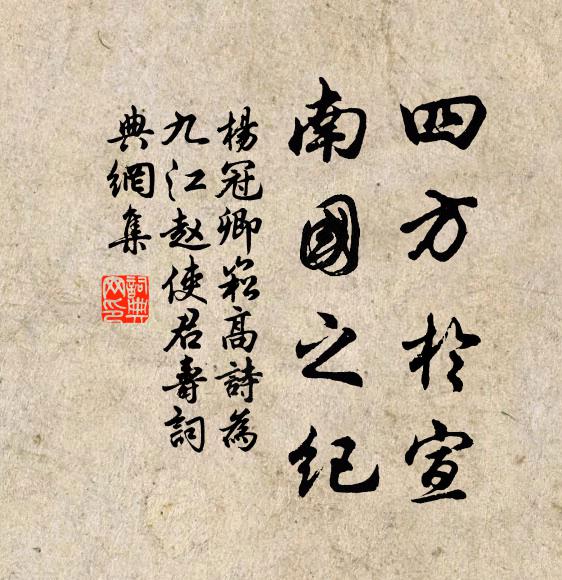 四方於宣
南國之紀
楊冠卿崧高詩為
九江赵使君壽詞
典網集
詞典
网印